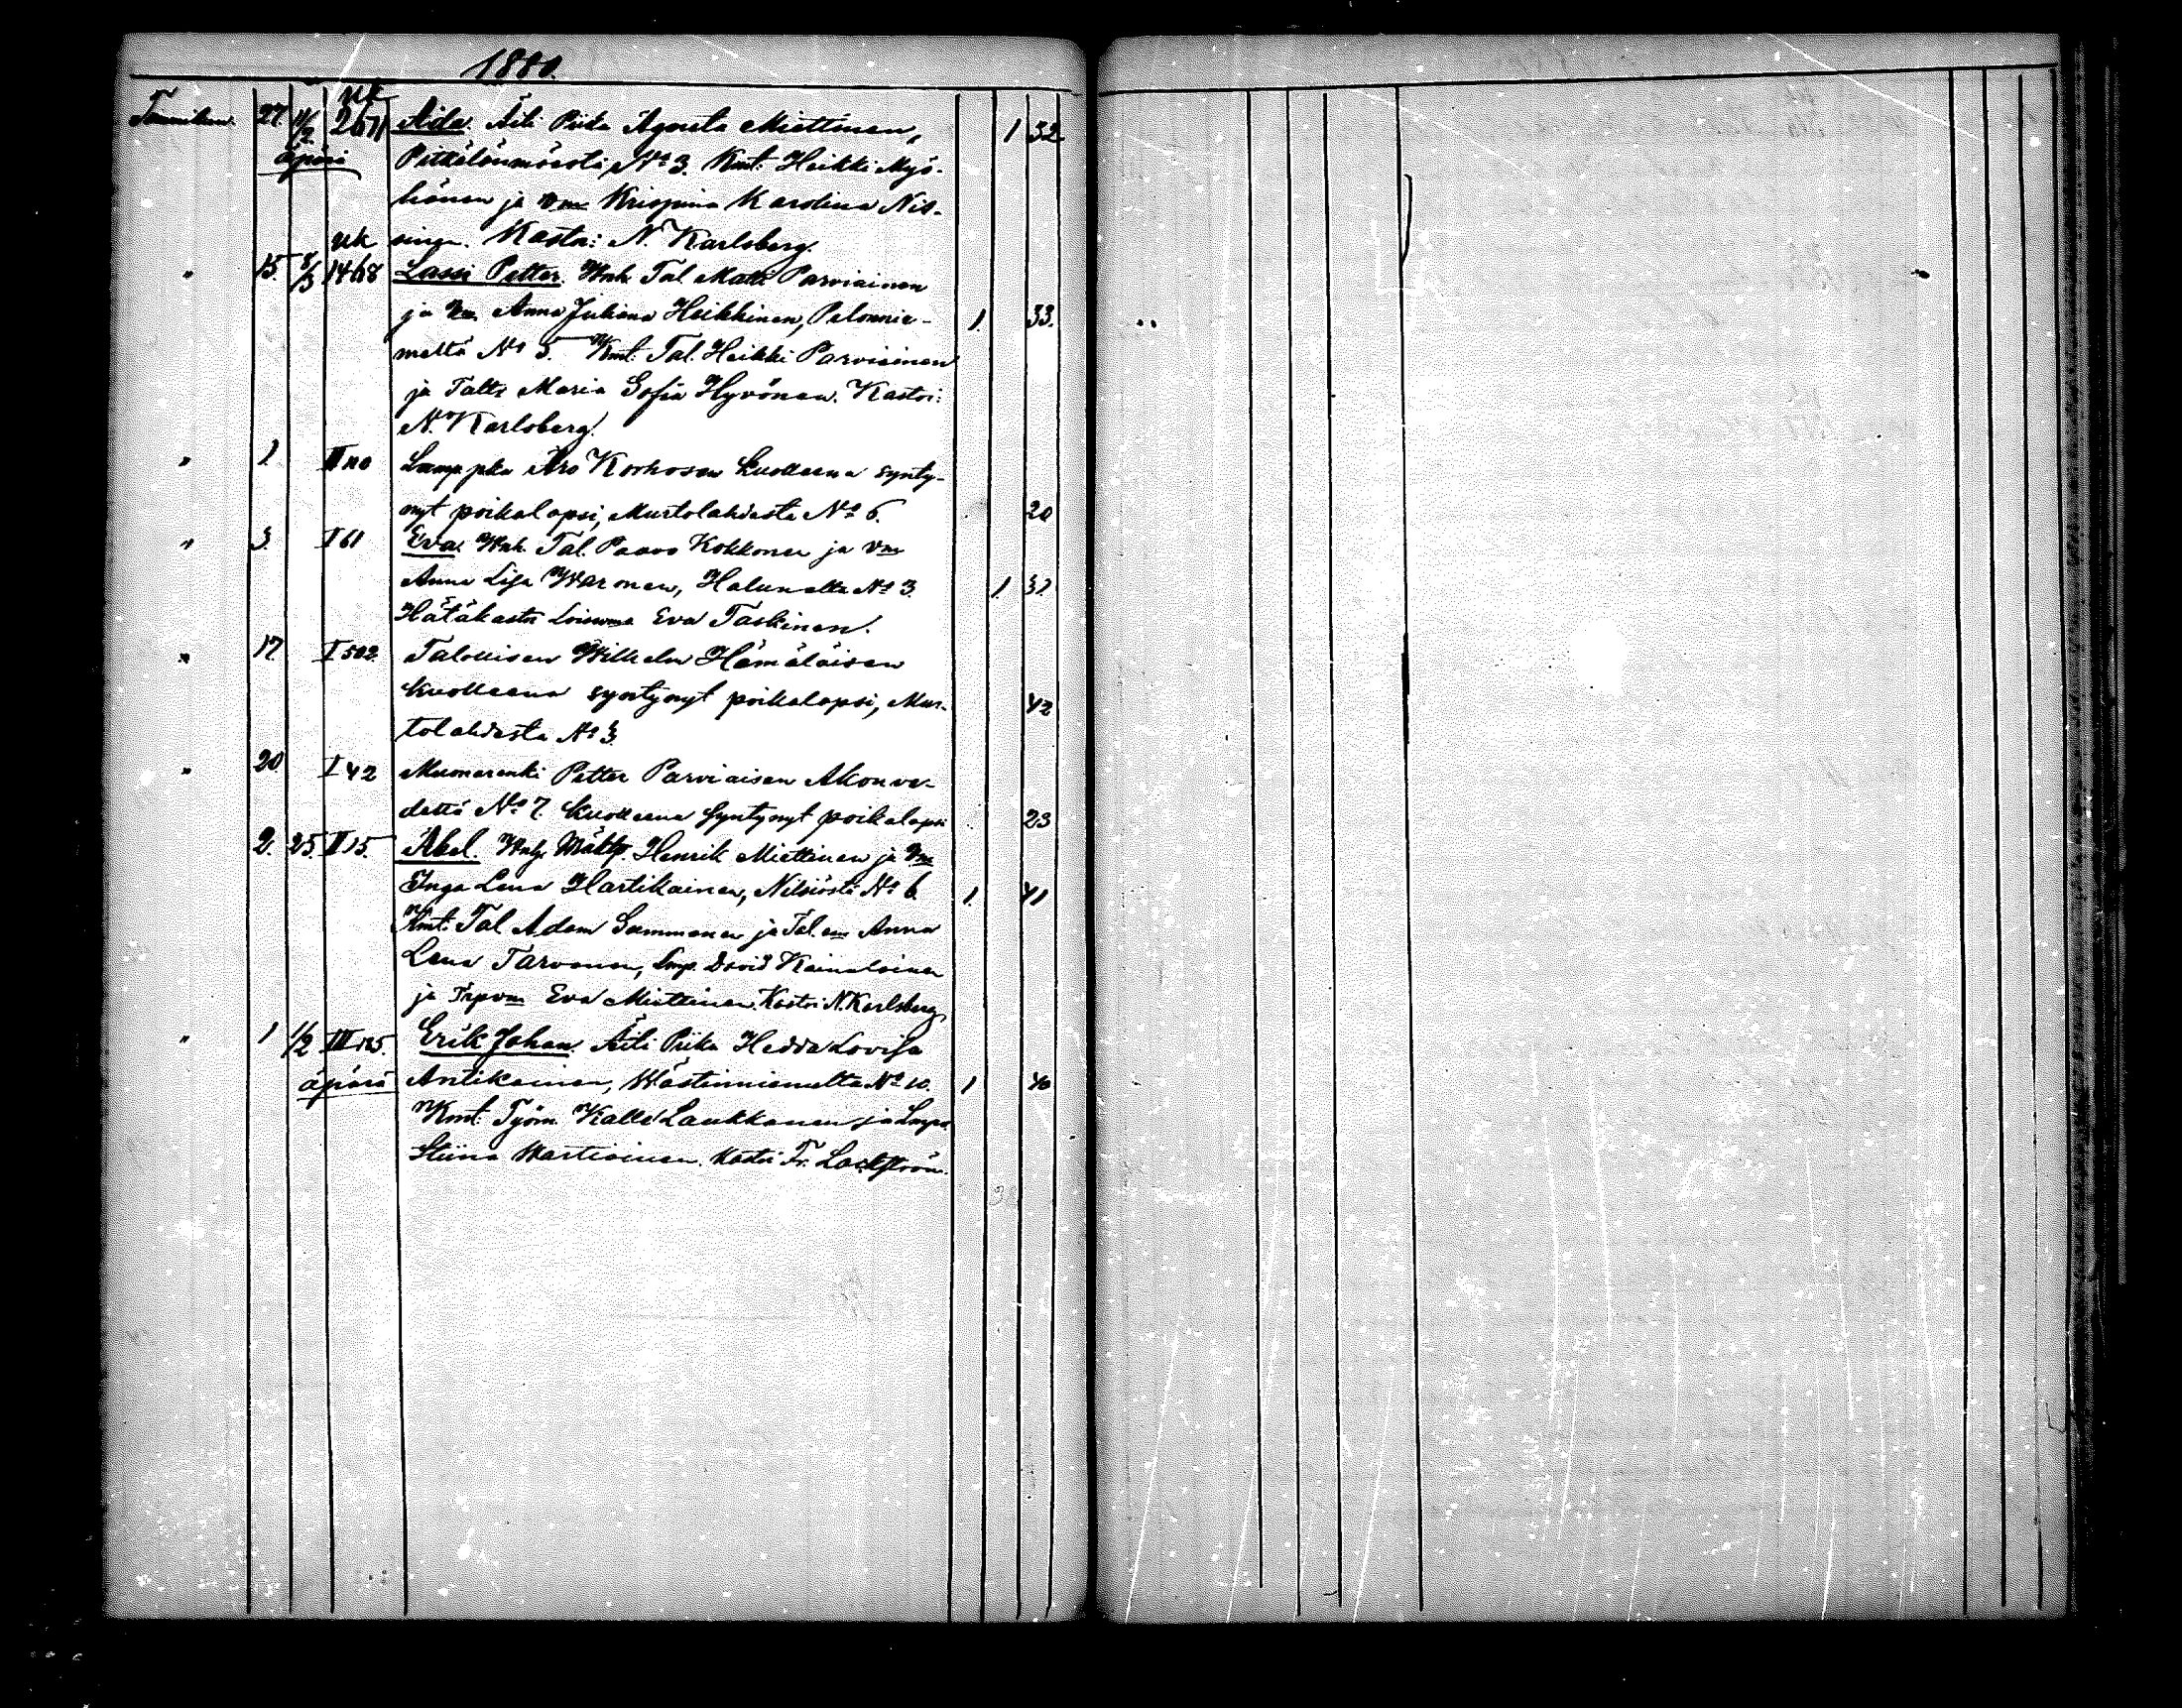 1880.
Tammikuu. 27. 11/2 uk 2671 Aida. Äiti Piika Agneta Miettinen, 1 32
äpärä Pitkälänmäestä, No 3. Kmt: Heikki Myö-
hänen ja vm Krispina Karolina Nis-
sinen. Kastoi: N. Karlsberg.
" 15. 8/3 uk 1468 Lassi Petter. Wnh. Tal. Matti Parviainen
ja vm Anna Juliana Heikkinen, Pelonnie- 1. 33.
meltä No 5. Kmt: Tal. Heikki Parviainen
ja Taltr Maria Sofia Hyvönen. Kastoi:
N. Karlsberg.
" 1. II 110 Lamp. pka Aro Korhosen kuolleena synty-
nyt poikalapsi, Murtolahdesta No 6. 20
" 3. I 61 Eva. Wnh. Tal. Paavo Kokkonen ja vm
Anna Lisa Waronen, Halunalta No 3. 1. 37
Hätäkastoi Loisvma Eva Taskinen.
" 17. I 502. Talollisen Wilhelm Hämäläisen
kuolleena syntynyt poikalapsi, Mur- 42
tolahdesta No 3
" 20. I 42 Muonarenki Petter Parviaisen Akonve-
deltä No 7. kuolleena syntynyt poikalapsi 23
2. 25. II 15. Abel. Wnh. Mäktp. Henrik Miettinen ja vm
Inga Lena Hartikainen, Nilsiästä No 6. 1. 41
Kmt: Tal Adam Summanen ja Tal. em Anna
Lena Tarvanen, Lmp. David Kainulainen
ja Trpvm Eva Miettinen. Kastoi N. Karlsberg.
" 1 1/2 III 125. Erik Johan. Äiti Piika Hedda Lovisa
äpärä Antikainen, Wästinniemeltä No 10. 1 40
Kmt: Työm. Kalle Laukkanen ja Lmpn
Stiina Wartiainen. Kastoi Fr. Lackström.